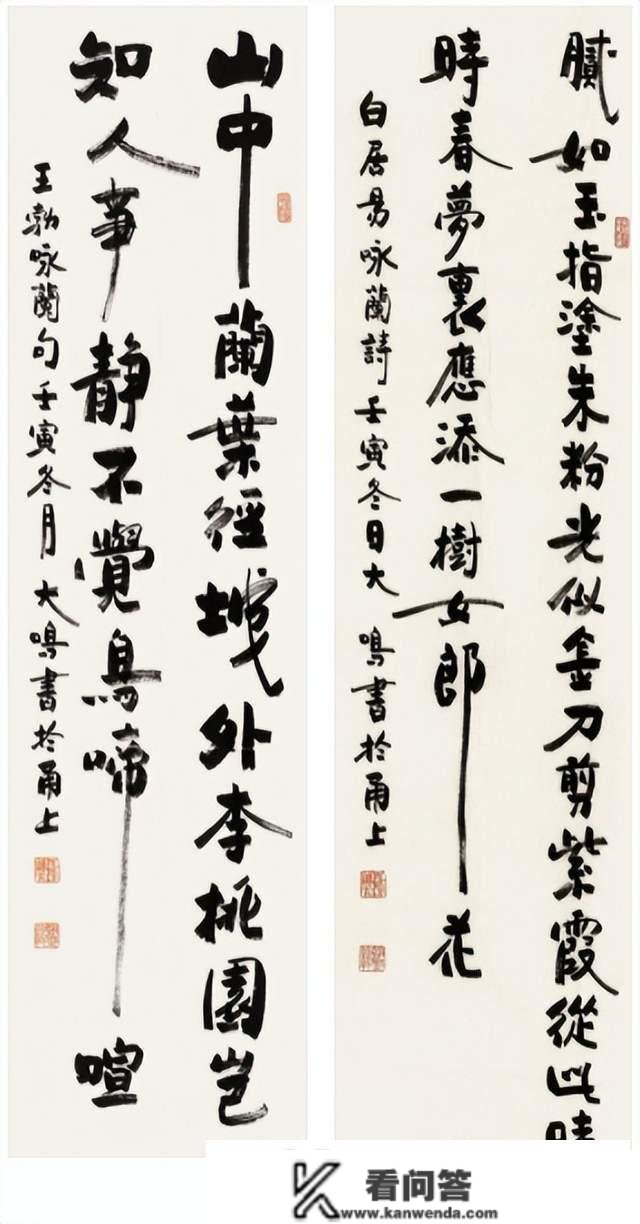 膩如玉指塗朱粉光似金刀剪紫霞從此時
時春夢裏應添一樹女郎花
白居易咏蘭詩壬寅冬日大鳴書於甬上
山中蘭葉徑城外李桃園豈
知人事靜不覺鳥啼喧
王勃咏蘭句壬寅冬月大鳴書於甬上
看问答
www.kanwenda.com